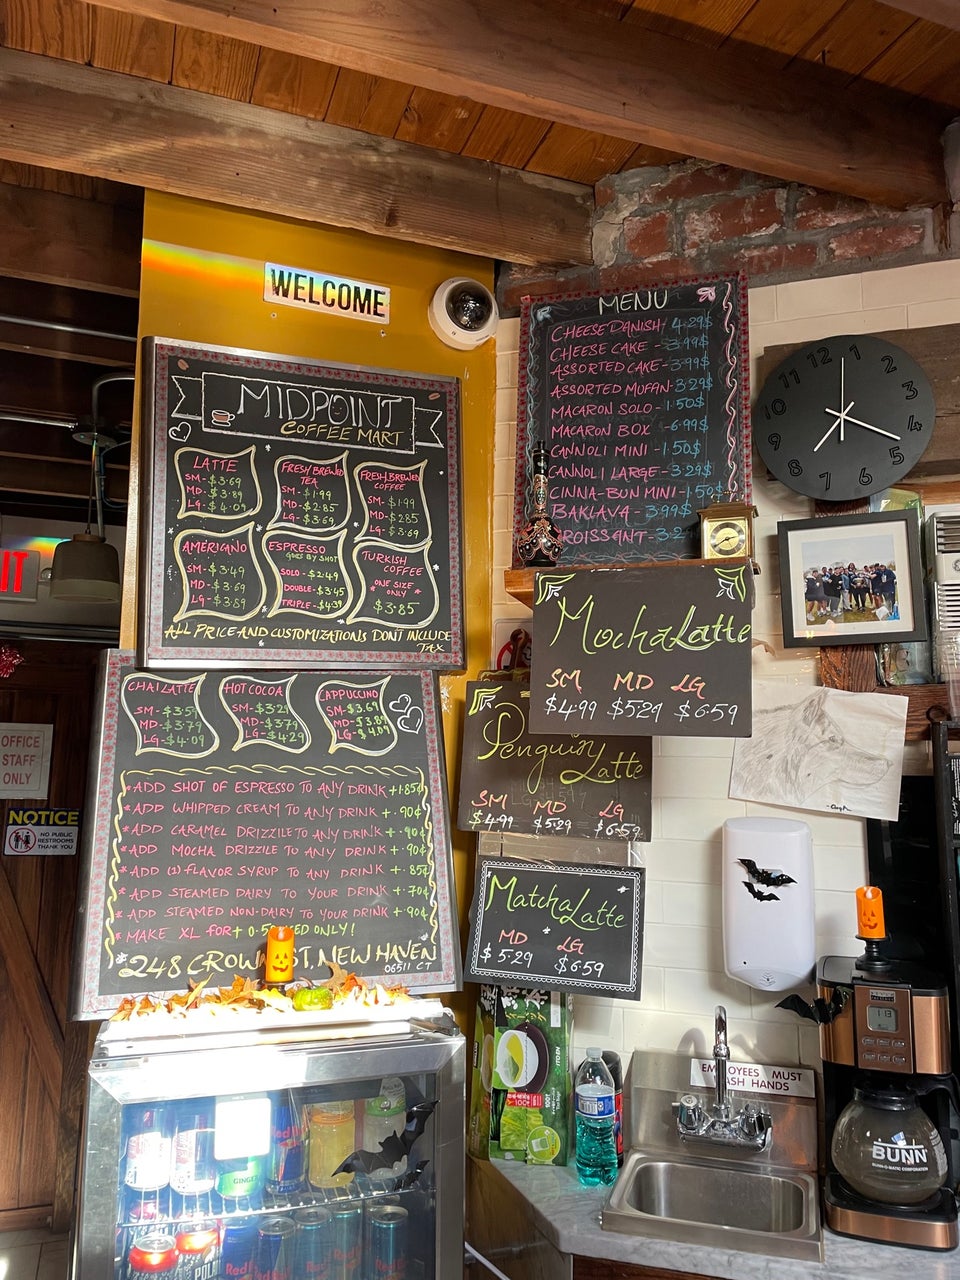 WELCOME
MIDPOINT
COFFEE MART
LATTE
SM-$3.69
MD-$3.89
LG-$4.09
FRESH BREWED
TEA
SM-$1.99
MD-$2.85
LG-$3.69
FRESH BREWED
COFFEE
SM-$1.99
MD-$2.85
LG-$3.69
AMERICANO
SM-$3.49
MD-$3.69
LG-$3.89
ESPRESSO
GOES BY SHOT
SOLO-$2.49
DOUBLE-$3.45
TRIPLE-$4.39
TURKISH
COFFEE
"ONE SIZE
ONLY"
$3.85
ALL PRICE AND CUSTOMIZATIONS DON'T INCLUDE
TAX
CHAI LATTE
SM-$3.59
MD-$3.79
LG-$4.09
HOT COCOA
SM-$3.29
MD-$3.79
LG-$4.29
CAPPUCCINO
SM-$3.69
MD-$3.89
LG-$4.09
*ADD SHOT OF ESPRESSO TO ANY DRINK +1.85¢
*ADD WHIPPED CREAM TO ANY DRINK +.90¢
*ADD CARAMEL DRIZZILE TO ANY DRINK +.90¢
*ADD MOCHA DRIZZLE TO ANY DRINK +.90¢
*ADD (1) FLAVOR SYRUP TO ANY DRINK +.85¢
*ADD STEAMED DAIRY TO YOUR DRINK +.70¢
*ADD STEAMED NON-DAIRY TO YOUR DRINK +.90¢
*MAKE XL FOR + 0.5 ED ONLY!
248 CROWN ST, NEW HAVEN
06511 CT
MENU
CHEESE DANISH-4.29$
CHEESE CAKE-3.99$
ASSORTED CAKE-3.99$
ASSORTED MUFFIN-3.29$
MACARON SOLO-1.50$
MACARON BOX-6.99$
CANNOLI MINI-1.50$
CANNOLI LARGE-3.29$
CINNA-BUN MINI-1.50$
BAKLAVA-3.99$
ROISSANT-3.2
Mocha Latte
SM MD LG
$4.99 $5.29 $6.59
Penguin
Latte
SM MD LG
$4.99 $5.29 $6.59
Matcha Latte
MD LG
$5.29 $6.59
12 1 2 3 4 5 7 8 10 11
IT
OFFICE
STAFF
ONLY
NOTICE
NO PUBLIC
RESTROOMS
THANK YOU
EMPLOYEES MUST
ASH HANDS
BUNN
BUNN-O-MATIC CORPORATION
GINGER
Red
POL
Red